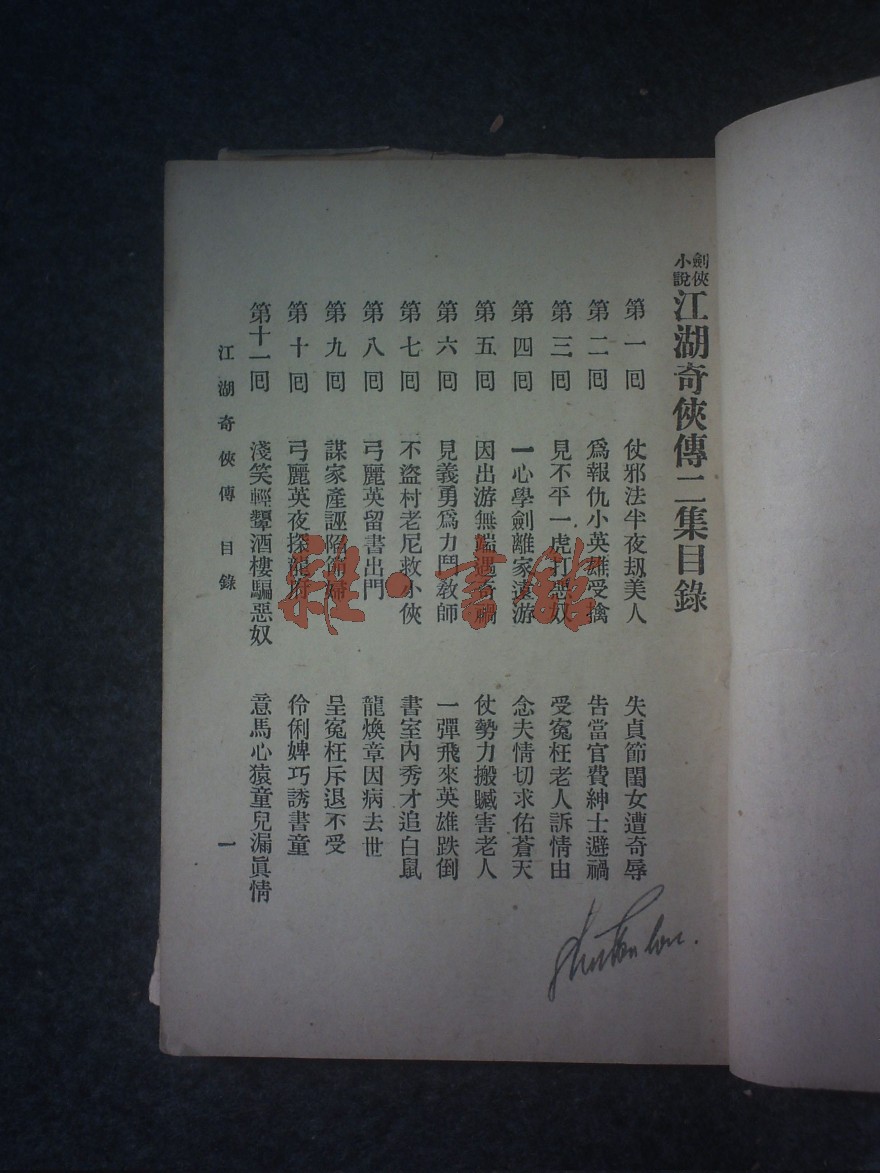 劍俠小說 江湖奇俠傳二集目錄
第一囘 仗邪法半夜刼美人 失貞節閨女遭奇辱
第二囘 爲報仇小英雄受擒 告當官費紳士避禍
第三囘 見不平一虎打惡奴 受冤枉老人訴情由
第四囘 一心學劍離家遠游 念夫情切求佑蒼天
第五囘 因出游無端遇奇禍 仗勢力搬贓害老人
第六囘 見義勇爲力鬥教師 一彈飛來英雄跌倒
第七囘 不盜村老尼救小俠 書室內秀才追白鼠
第八囘 弓麗英留書出門 龍煥章因病去世
第九囘 謀家產誣陷節婦 呈冤枉斥退不受
第十囘 弓麗英夜探龍府 伶俐婢巧誘書童
第十一囘 淺笑輕顰酒樓騙惡奴 意馬心猿童兒漏眞情
江湖奇俠傳 目錄 一
雜·書館